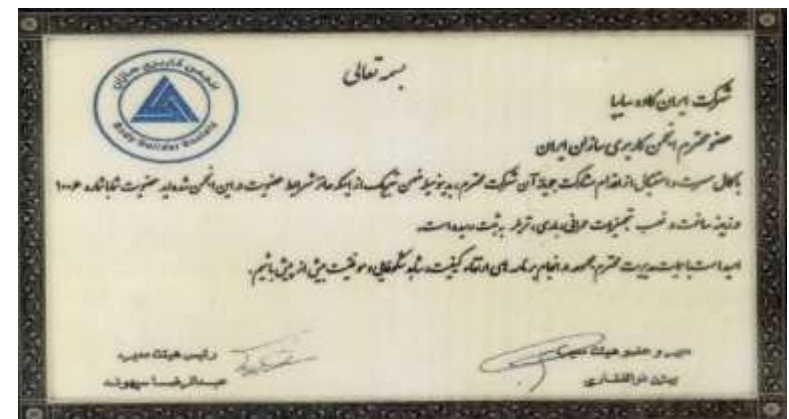 بسمه تعالی
انجمن کاربری سازان
Body Builder Society
شرکت ایران کاوه سایپا
عضو محترم انجمن کاربری سازان ایران
با کمال مسرت و استقبال از اقدام مشارکت جویانه آن شرکت محترم، بدینوسیله ضمن تبریک از اینکه حائز شرایط عضویت در این انجمن شده‌اید عضویت شما با شماره ۱۰۰۶
در زمینه ساخت و نصب تجهیزات باری، تریلر به ثبت رسیده است.
امید است با حمایت مدیریت محترم و انجام برنامه های ارتقاء کیفیت، شاهد شکوفایی و موفقیت بیش از پیش باشیم.
دبیر و عضو هیئت مدیره
رئیس هیئت مدیره
عبدالرضا